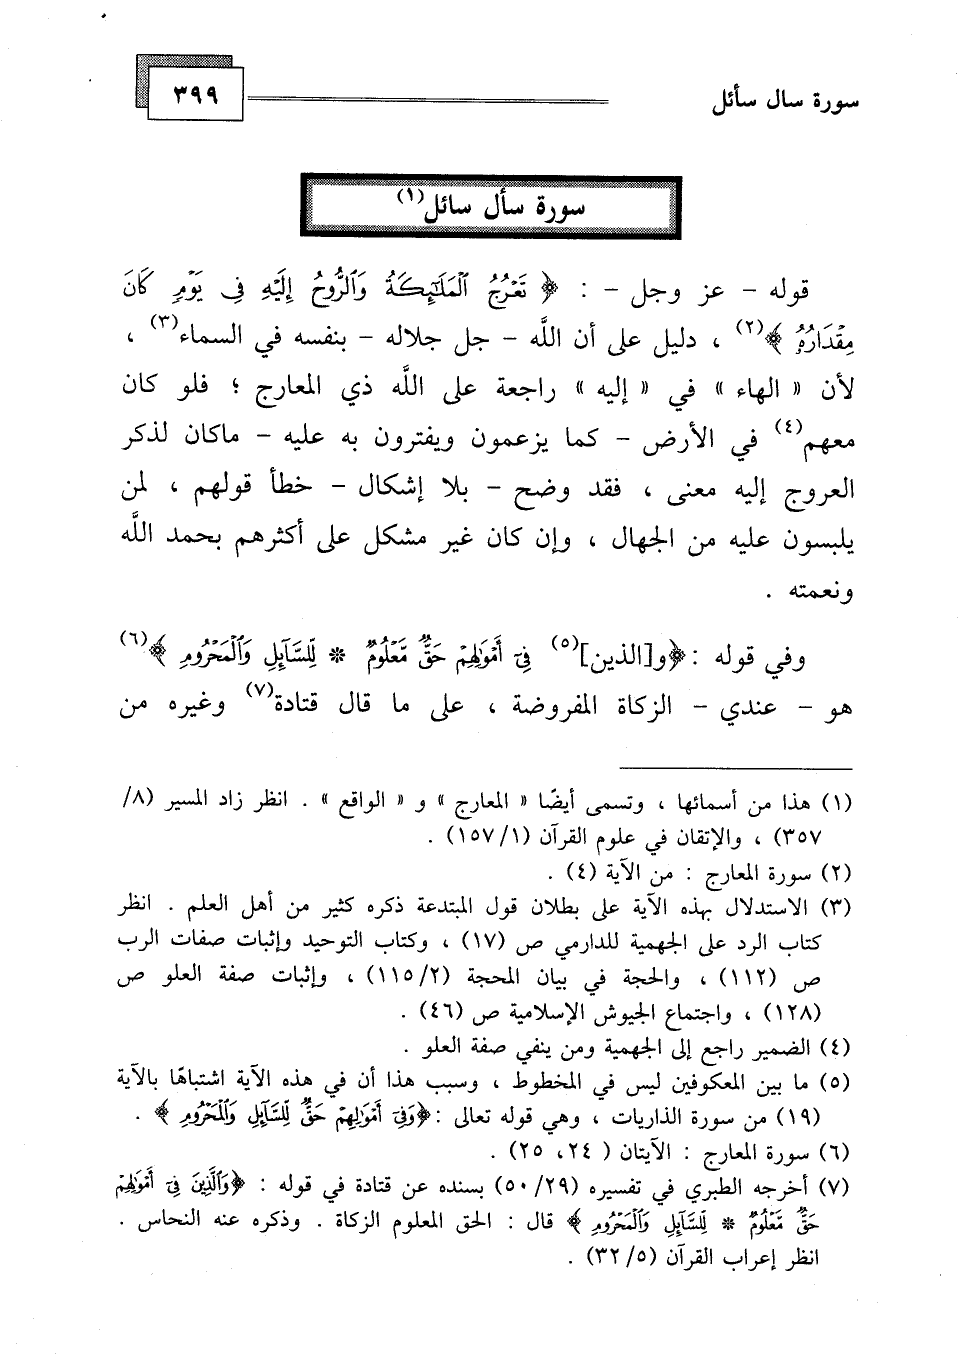 سورة سال سأئل
٣٩٩
سورة سأل سائل(١)
قوله – عز وجل – : ﴿ تَعْرُجُ الْمَلَٰٓئِكَةُ وَالرُّوحُ إِلَيْهِ فِى يَوْمٍ كَانَ
مِقْدَارُهُۥ ﴾(٢) ، دليل على أن اللَّه – جل جلاله – بنفسه في السماء(٣) ،
لأن « الهاء » في « إليه » راجعة على اللَّه ذي المعارج ؛ فلو كان
معهم(٤) في الأرض – كما يزعمون ويفترون به عليه – ماكان لذكر
العروج إليه معنى ، فقد وضح – بلا إشكال – خطأ قولهم ، لمن
يلبسون عليه من الجهال ، وإن كان غير مشكل على أكثرهم بحمد اللَّه
ونعمته .
وفي قوله : ﴿و[الذين](٥) فِىٓ أَمْوَٰلِهِمْ حَقٌّ مَّعْلُومٌ * لِّلسَّآئِلِ وَالْمَحْرُومِ ﴾(٦)
هو – عندي – الزكاة المفروضة ، على ما قال قتادة(٧) وغيره من
(١) هذا من أسمائها ، وتسمى أيضًا « المعارج » و « الواقع » . انظر زاد المسير (٨/
٣٥٧) ، والإتقان في علوم القرآن (١٥٧/١) .
(٢) سورة المعارج : من الآية (٤) .
(٣) الاستدلال بهذه الآية على بطلان قول المبتدعة ذكره كثير من أهل العلم . انظر
كتاب الرد على الجهمية للدارمي ص (١٧) ، وكتاب التوحيد وإثبات صفات الرب
ص (١١٢) ، والحجة في بيان المحجة (١١٥/٢) ، وإثبات صفة العلو ص
(١٢٨) ، واجتماع الجيوش الإسلامية ص (٤٦) .
(٤) الضمير راجع إلى الجهمية ومن ينفي صفة العلو .
(٥) ما بين المعكوفين ليس في المخطوط ، وسبب هذا أن في هذه الآية اشتباهًا بالآية
(١٩) من سورة الذاريات ، وهي قوله تعالى : ﴿وَفِىٓ أَمْوَٰلِهِمْ حَقٌّ لِّلسَّآئِلِ وَالْمَحْرُومِ ﴾ .
(٦) سورة المعارج : الآيتان ( ٢٤، ٢٥) .
(٧) أخرجه الطبري في تفسيره (٥٠/٢٩) بسنده عن قتادة في قوله : ﴿وَالَّذِينَ فِىٓ أَمْوَٰلِهِمْ
حَقٌّ مَّعْلُومٌ * لِّلسَّآئِلِ وَالْمَحْرُومِ ﴾ قال : الحق المعلوم الزكاة . وذكره عنه النحاس .
انظر إعراب القرآن (٣٢/٥) .